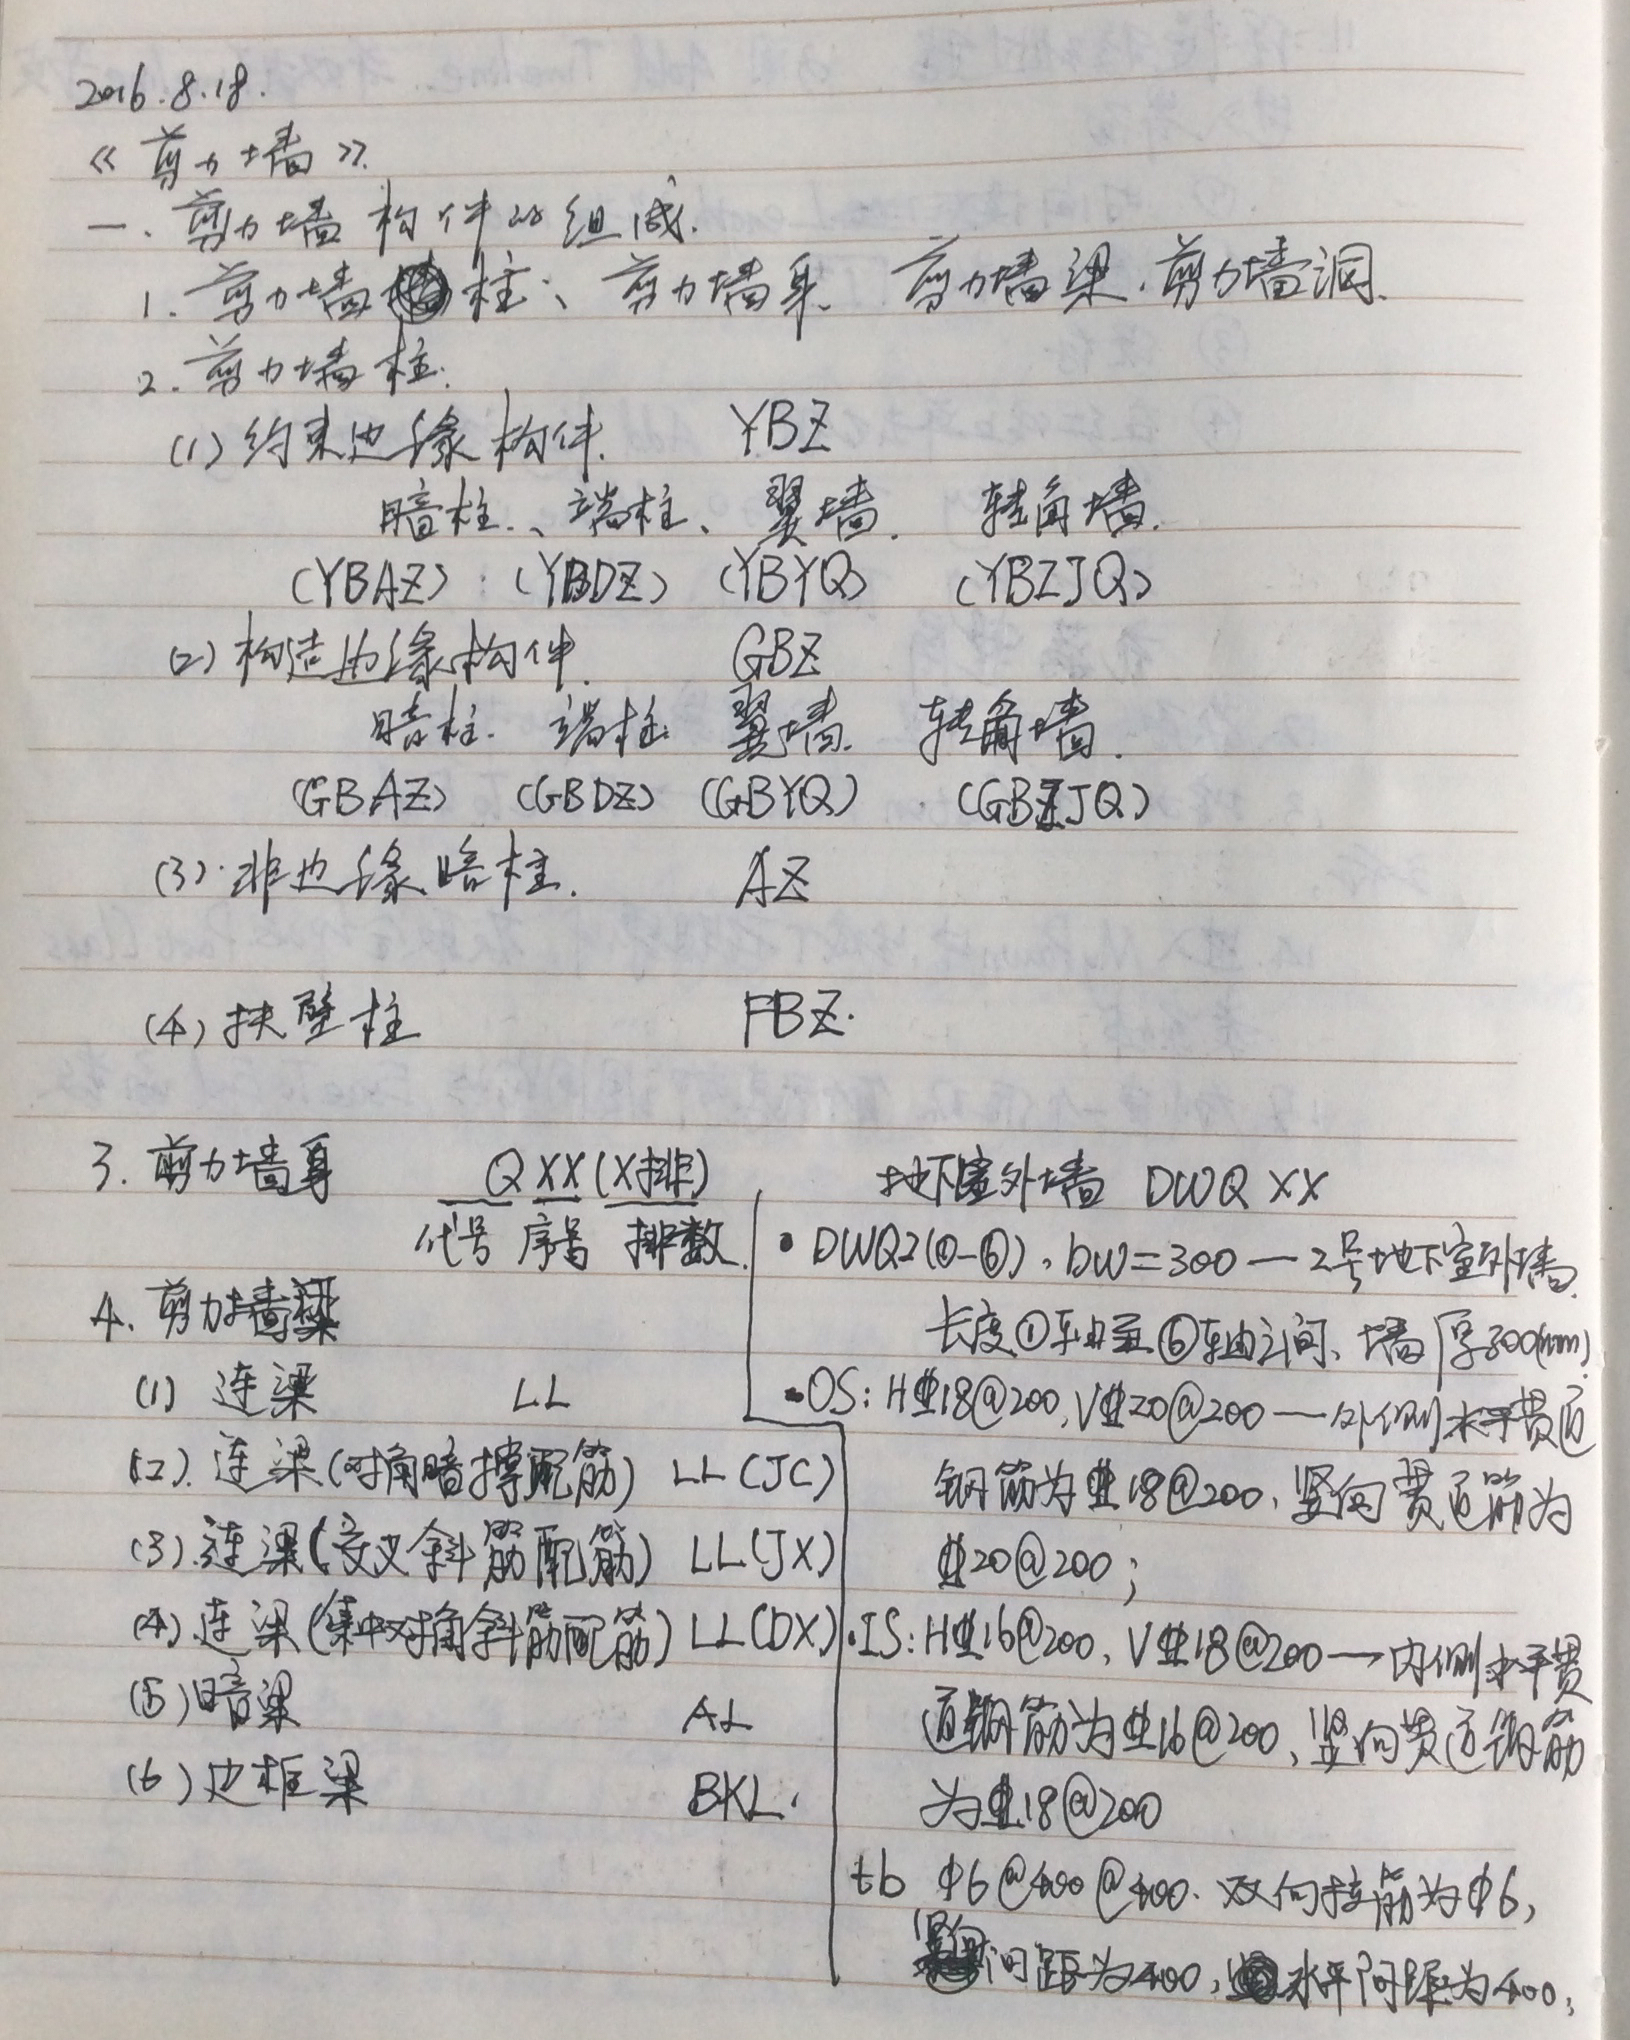 2016.8.18.
《剪力墙》.
一、剪力墙构件的组成.
1. 剪力墙柱、剪力墙身、剪力墙梁、剪力墙洞.
2. 剪力墙柱.
(1) 约束边缘构件. YBZ
暗柱、端柱、翼墙. 转角墙.
(YBAZ) (YBDZ) (YBYQ) (YBZJQ)
(2) 构造边缘构件. GBZ
暗柱. 端柱. 翼墙. 转角墙.
(GBAZ) (GBDZ) (GBYQ) (GBZJQ)
(3) 非边缘暗柱. AZ
(4) 扶壁柱 FBZ.
3. 剪力墙身 QXX(X排)
代号 序号 排数
4. 剪力墙梁
(1) 连梁 LL
(2). 连梁(对角暗撑配筋) LL(JC)
(3). 连梁(交叉斜筋配筋) LL(JX)
(4) 连梁(集中对角斜筋配筋) LL(DX)
(5) 暗梁 AL
(6) 边框梁 BKL.
地下室外墙 DWQ XX
• DWQ2(①-⑥), bw=300 — 2号地下室外墙
长度①轴至⑥轴之间、墙厚300(mm)
• OS: H⏀18@200, V⏀20@200 — 外侧水平贯通
钢筋为⏀18@200, 竖向贯通筋为
⏀20@200;
• IS: H⏀16@200, V⏀18@200 — 内侧水平贯
通钢筋为⏀16@200, 竖向贯通钢筋
为⏀18@200
tb ϕ6@400@400. 双向拉筋为ϕ6,
竖向间距为400, 水平间距为400;